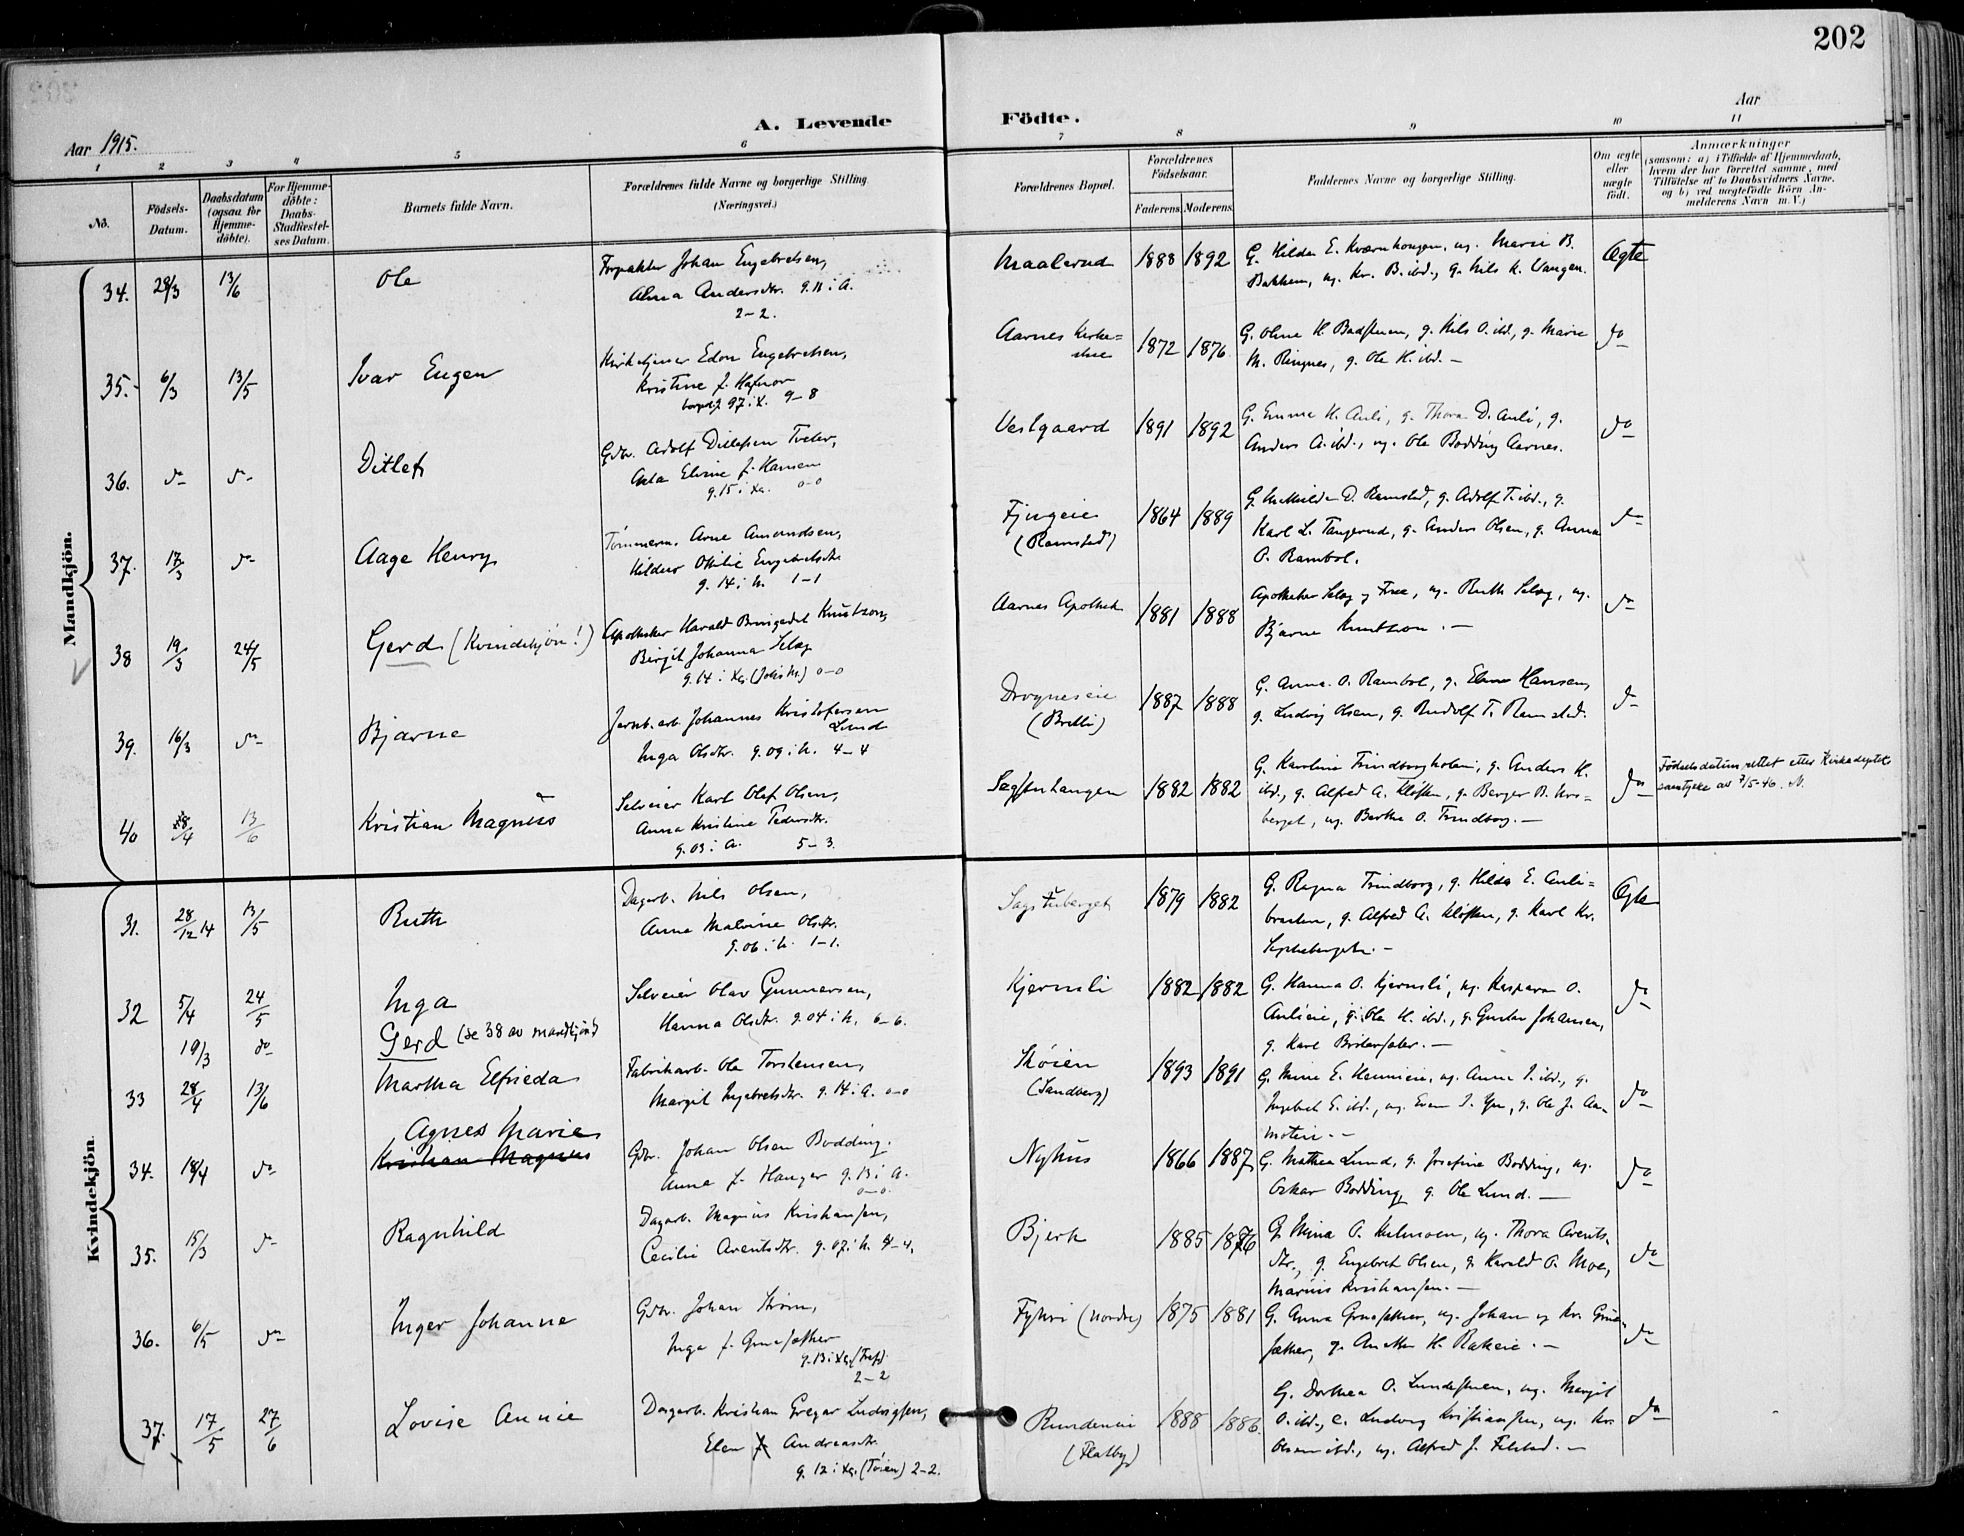 202
Aar
A. Levende Födte.
Aar 1915.
1 2 3 4 5 6 7 8 9 10 11
No.
Födsels-
Datum.
Daabsdatum
(ogsaa for
Hjemme-
döbte).
For Hjemme-
döbte:
Daabs-
Stadfæstel-
ses Datum.
Barnets fulde Navn.
Forældrenes fulde Navne og borgerlige Stilling
(Næringsvei.)
Forældrenes Bopæl.
Forældrenes
Födselsaar.
Faderens. Moderens.
Faddernes Navne og borgerlige Stilling.
Om ægte
eller
uægte
födt.
Anmærkninger
(saasom: a) i Tilfælde af Hjemmedaab,
hvem der har forrettet samme, med
Tilföielse af to Daabsvidners Navne,
og b) ved uægtefödte Börn An-
melderens Navn m. V.)
Mandkjön.
34. 28/3 13/6 Ole
Forpakter Johan Engebretsen,
Alma Andersdtr. g. 11 i A.
2-2.
Maalerud 1888 1892
G. Hilda E. Kværnhaugen, ug. Marie B.
Bakken, ug. Kr. B. ibd., g. Nils K. Vangen.
Ægte
35. 6/3 13/5 Ivar Eugen
Kirketjener Edon Engebretsen,
Kristine f. Hafnor
borgl. 97 i K. 9-8
Aarnes Kirke=
stue 1872 1876
G. Oline H. Badstuen, g. Nils O. ibd., g. Marie
M. Ringnes, g. Ole H. ibd. -
do
36. do do Ditlef
Gdbr. Adolf Ditlefsen Tveter,
Asta Elvine f. Hansen
g. 15 i Xa. 0-0
Vestgaard 1891 1892
G. Emma H. Auli, g. Thora D. Auli, g.
Anders A. ibd., ug. Ole Bodding Aarnes.
do
37. 17/3 do Aage Henry
Tömmerm. Arne Amundsen,
Hildur Otilie Engebretsdtr.
g. 14 i h. 1-1
Fjugeie
(Ramstad) 1864 1889
G. Mathilde D. Ramstad, g. Adolf T. ibd., g.
Karl L. Tangerud, g. Anders Olsen, g. Anna
O. Rambøl.
do
38 19/3 24/5 Gerd (Kvindekjön!)
Apotheker Harald Bringedal Knutzon,
Birgit Johanna Selag
g. 14 i Xa. (Johs k.) 0-0
Aarnes Apothek 1881 1888
Apotheker Selag og Frue, ug. Ruth Selag, ug.
Bjarne Knutzon. -
do
39. 16/3 do Bjarne
Jernb.arb. Johannes Kristofersen
Lund
Inga Olsdtr. g. 09 i h. 4-4
Drogneseie
(Brelli) 1887 1888
G. Anna O. Rambøl, g. Elmo Hansen,
g. Ludvig Olsen, g. Rudolf T. Ramstad.
do
40 28/4 13/6 Kristian Magnus
Selveier Karl Olaf Olsen,
Anna Kristine Pedersdtr.
g. 03 i A. 5-3.
Sagstuhaugen 1882 1882
G. Karoline Trindborgholm, g. Anders K.
ibd., g. Alfred A. Kløften, g. Berger B. Urs=
berget, ug. Berthe O. Trindborg. -
do
Fødselsdatum rettet etter Kirkedeptets
samtykke av 7/5-46. N.
Kvindekjön.
31. 28/12 14 13/5 Ruth
Dagarb. Nils Olsen,
Anne Malvine Olsdtr.
g. 06 i h. 1-1.
Sagstuberget 1879 1882
G. Ragna Trindborg, g. Hilda E. Auli=
braaten, g. Alfred A. Kløften, g. Karl Kr.
Ægte
32 5/4 24/5 Inga
Selveier Olav Gunnersen,
Hanna Olsdtr. g. 04 i h. 6-6.
Kjernsli 1882 1882
G. Hanna O. Kjernsli, ug. Kaspara O.
Aulieie, g. Ole H. ibd., g. Gustav Johansen,
do
19/3 do Gerd (se 38 av mandkjönd)
33 28/4 13/6 Martha Elfrieda
Fabrikarb. Ole Torstensen,
Margit Ingebretsdtr. g. 14 i A. 0-0
Skøien
(Sandberg) 1893 1891
do
34. 18/4 do Agnes Marie
Kristian Magnus
Gdbr. Johan Olsen Bodding.
Anna f. Hanger g. 13 i A.
0-0.
Nyhus 1866 1887
G. Mathea Lund, g. Josefine Bodding, ug.
Oskar Bodding, g. Ole Lund. -
do
35. 15/3 do Ragnhild
Dagarb. Magnus Kristiansen,
Cecilie Arentsdtr. g. 07 i h. 4-4.
Bjerk 1885 1876
G. Mina O. Kulmoen, ug. Thora Arents-
dtr., g. Engebret Olsen, g. Harald O. Moe,
Marius Kristiansen. -
do
36. 6/5 do Inger Johanne
Gdbr. Johan Strøm,
Inga f. Grusæther
g. 13 i Xa. (Tref.)
2-2
Fyhri (nordre) 1875 1881
G. Anna Grusæther, ug. Johan og Kr. Gru=
sæther, g. Anette H. Rakeie. -
do
37. 17/5 27/6 Lovise Annie
Dagarb. Kristian Gregar Ludvigsen,
Elen f. Andreasdtr.
g. 12 i Xa. (Tøien) 2-2.
Rundenie
(Flatby) 1888 1886.
G. Dorthea O. Lundestuen, ug. Margit
O. ibd., e. Ludvig Kristiansen, ug. Kr.
Olsen ibd., ug. Alfred J. Filstad. -
do